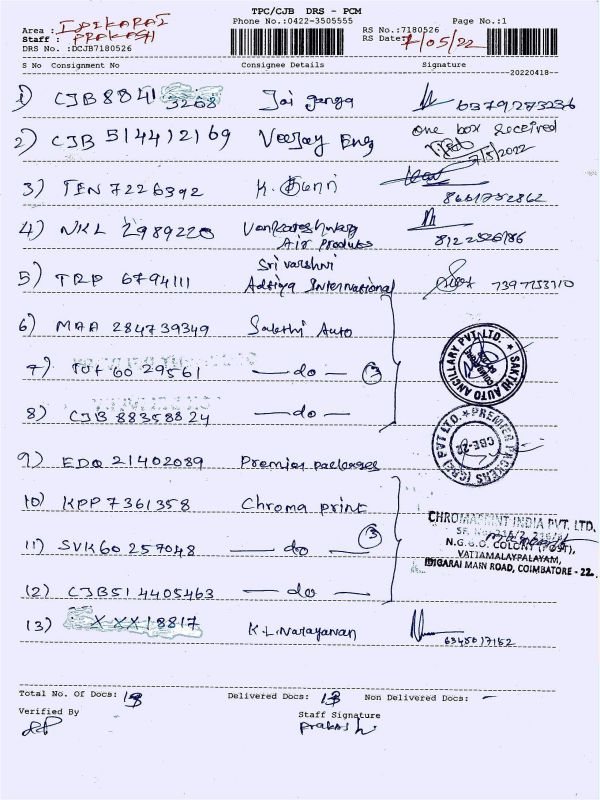 TPC/CJB DRS - PCM
Area : IDIKARAI
Phone No.:0422-3505555
Page No.:1
Staff : PRAKASH
RS No.:7180526
DRS No. :DCJB7180526
RS Date: 7/05/22
S No Consignment No Consignee Details Signature
20220418
1) CJB 8841 3268 Jai ganga 6379273236
2) CJB 514412169 Veejay Eng one box received
7/5/2022
3) TEN 7226392 K.
8661752862
4) NKL 2989220 Venkateshwara
Air Produts
5) TRP 6794111 Sri varshni
Aditya International
6) MAA 284739349 Sakthi Auto
7) 6029561 — do — 3
8) CJB 88358824 — do —
SAKTHI AUTO ANCILLARY PVT. LTD.
9) EDQ 21402089 Premier packages
PREMIER PACKERS (CBE) PVT LTD.
CBE-22
10) KPP 7361358 Chroma print
11) SVK60 257048 — do — 3
CHROMAPRINT INDIA PVT. LTD.
N.G.G.O. COLONY (POST),
VATTAMALAYPALAYAM,
IDIGARAI MAIN ROAD, COIMBATORE - 22.
12) CJB51 4405463 — do —
13) XXX18817 K.L.Narayanan
Total No. Of Docs: 13 Delivered Docs: 13 Non Delivered Docs: -
Verified By
Staff Signature
Prakash